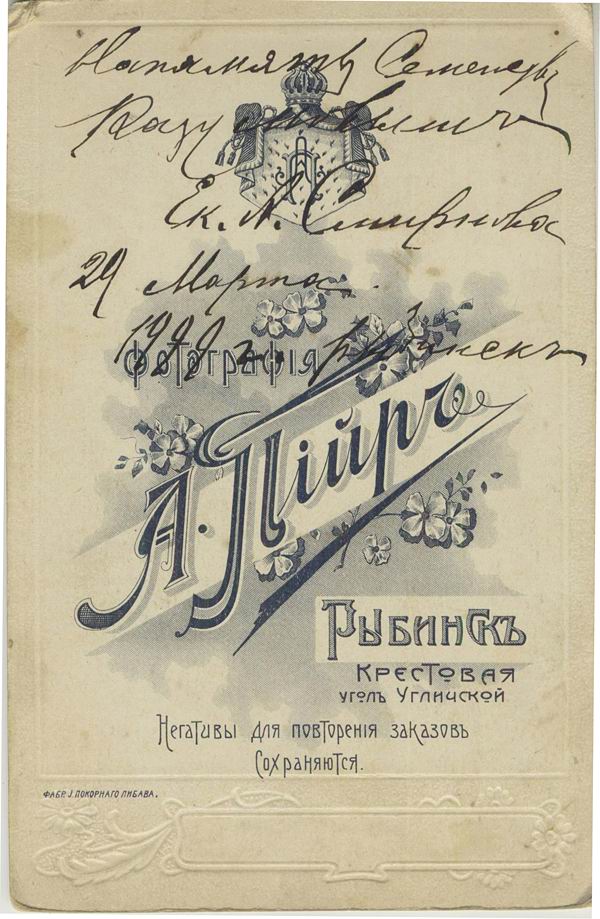 На память Семенову
Ек. А. Смирнова
29 Марта
г. Рыбинскъ
Фотографія
А. Пійръ
Рыбинскъ
Крестовая
уголъ Угличской
Негативы для повторенія заказовъ
Сохраняются.
Фабр. І. Покорнаго Либава.